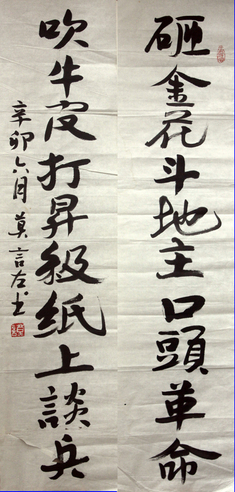 砸金花斗地主口頭革命
吹牛皮打昇級纸上談兵
辛卯六月莫言左书